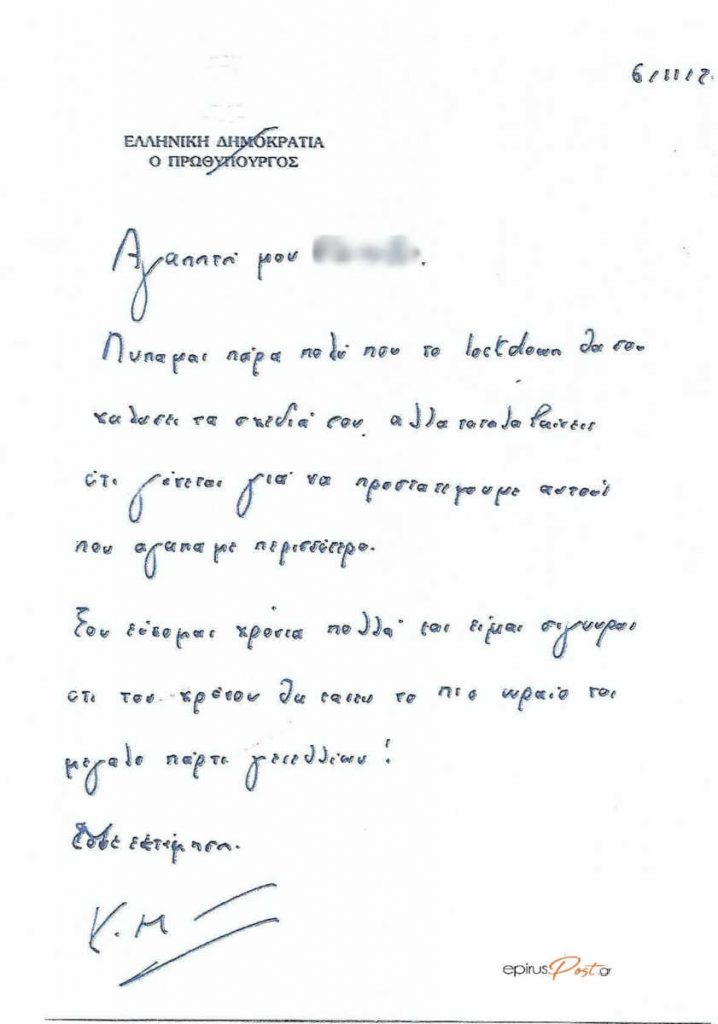 6/11/2
ΕΛΛΗΝΙΚΗ ΔΗΜΟΚΡΑΤΙΑ
Ο ΠΡΩΘΥΠΟΥΡΓΟΣ
Αγαπητή μου .
Λυπαμαι πάρα πολύ που το lockdown θα σου
χαλασει τα σχεδιά σου, αλλα καταλαβαίνεις
ότι γίνεται γιά να προστατεψουμε αυτούς
που αγαπαμε περισσότερο.
Σου εύχομαι χρόνια πολλά και είμαι σίγουρος
οτι του χρόνου θα κανεις το πιο ωραίο και
μεγαλο πάρτι γενεθλίων!
Με εκτίμηση.
Κ.Μ
epirusPost.gr